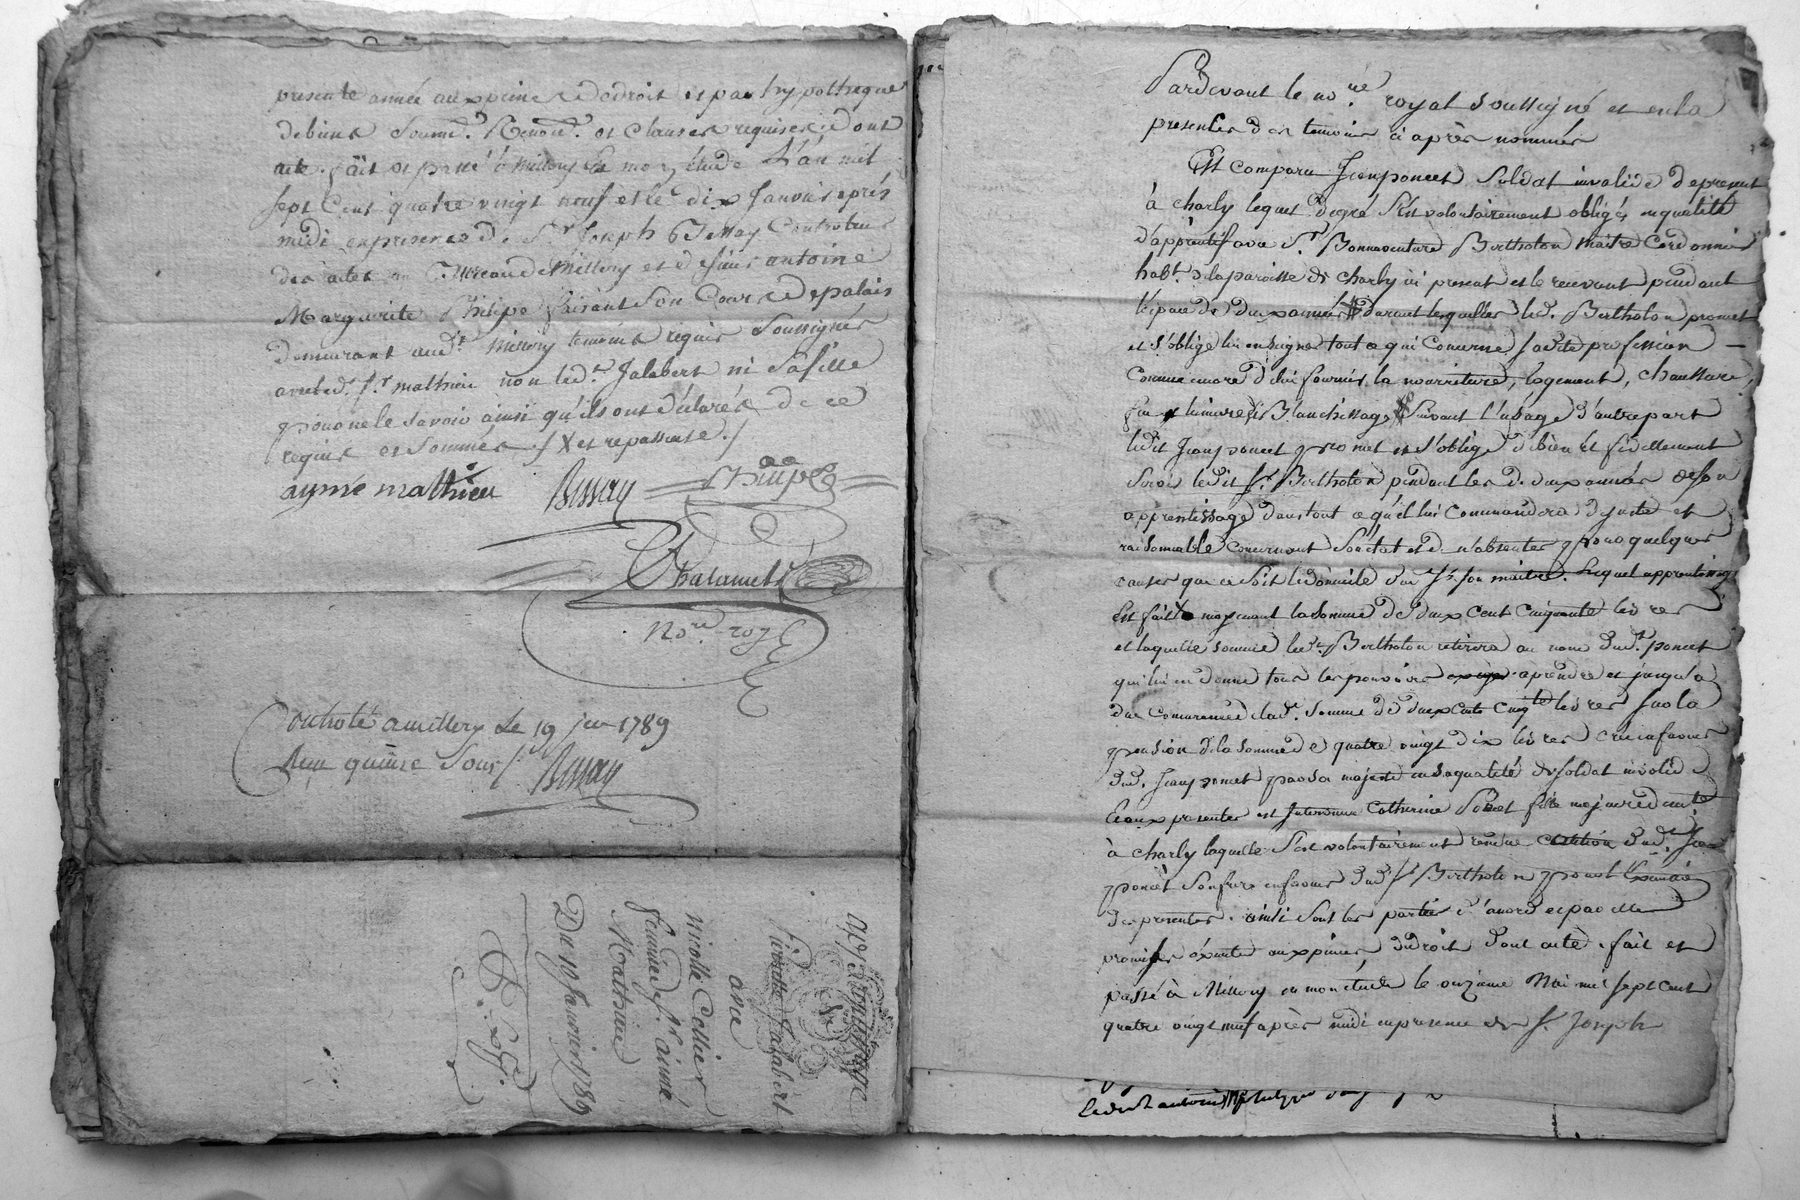 presente année aux peines de droit et par hypothèque
de biens soum.ⁿ Renon.ⁿ et clauses requises, dont
acte. fait et passé à Millery en mon étude L'an mil
sept Cent quatre vingt neuf et le dix Janvier après
midi en presence de S.r Joseph Bessay Controleur
des actes au Bureau de Millery et de sieur antoine
Marguerite Philipe faisant Son Cours de palais
demeurant aud.t Millery temoins requis Soussignés
avec led. s.r mathieu non led.t Jalabert ni sa fille
pour ne le savoir ainsi qu'ils ont déclaré de ce
requis et Sommés ./ X et repasseuse ./
aymé mathieu Bessay Philipe
Chalamet
No.re roy.
Controlé a millery Le 19 jer 1789
Reçu quinze Sous /. Bessay
apprentissage
Pierrette Jalabert
avec
nicolle Collier
femme de s.r aimé
Mathieu
Du 19 Janvier 1789
Par devant le no.re royal soussigné et en la
presence des temoins ci après nommés
Est comparu Jean poncet Soldat invalide de present
à charly lequel de gré s'est volontairement obligé en qualité
d'apprentif avec S.r Bonnaventure Bertholon maitre Cordonnier
hab.t de la paroisse de charly ici present et le recevant pendant
l'espace de deux années durant lesquelles led. Bertholon promet
et s'oblige lui enseigner tout ce qui Concerne sa dite profession —
Comme encore de lui fournir la nourriture, logement, chauffure,
feu lumiere Blanchissage Suivant l'usage d'autre part
ledit Jean poncet promet et s'oblige de bien et fidellement
Servir ledit S.r Bertholon pendant les d. deux années de son
apprentissage dans tout ce qu'il lui Commandera de juste et
raisonnable concernant Son état et de n'absenter pour quelques
causes que ce soit le domicile dud. S.r son maitre. Lequel apprentissage
Est fait moyenant la somme de deux cent cinquante livres
et laquelle somme led.t Bertholon retirera au nom dud.t poncet
qui lui en donne tous les pouvoirs a prendre et jusqu'a
due Concurrence de lad. Somme de deux Cents Cinq.te livres sur la
pension de la somme de quatre vingt dix livres crée en faveur
dud. Jean poncet par Sa majesté en sa qualité de soldat invalide
Et aux presentes est Intervenue Catherine Poncet fille majeure dem.te
à charly laquelle s'est volontairement rendue caution dud.t Jean
poncet Son frere en faveur dud. S.r Bertholon pour l'éxécution
des presentes. ainsi sont les parties d'accord et par elles
promis éxécuter aux peines de droit dont acte. fait et
passé à Millery en mon étude le onzieme Mai mil sept cent
quatre vingt neuf après midi en presence de S.r Joseph